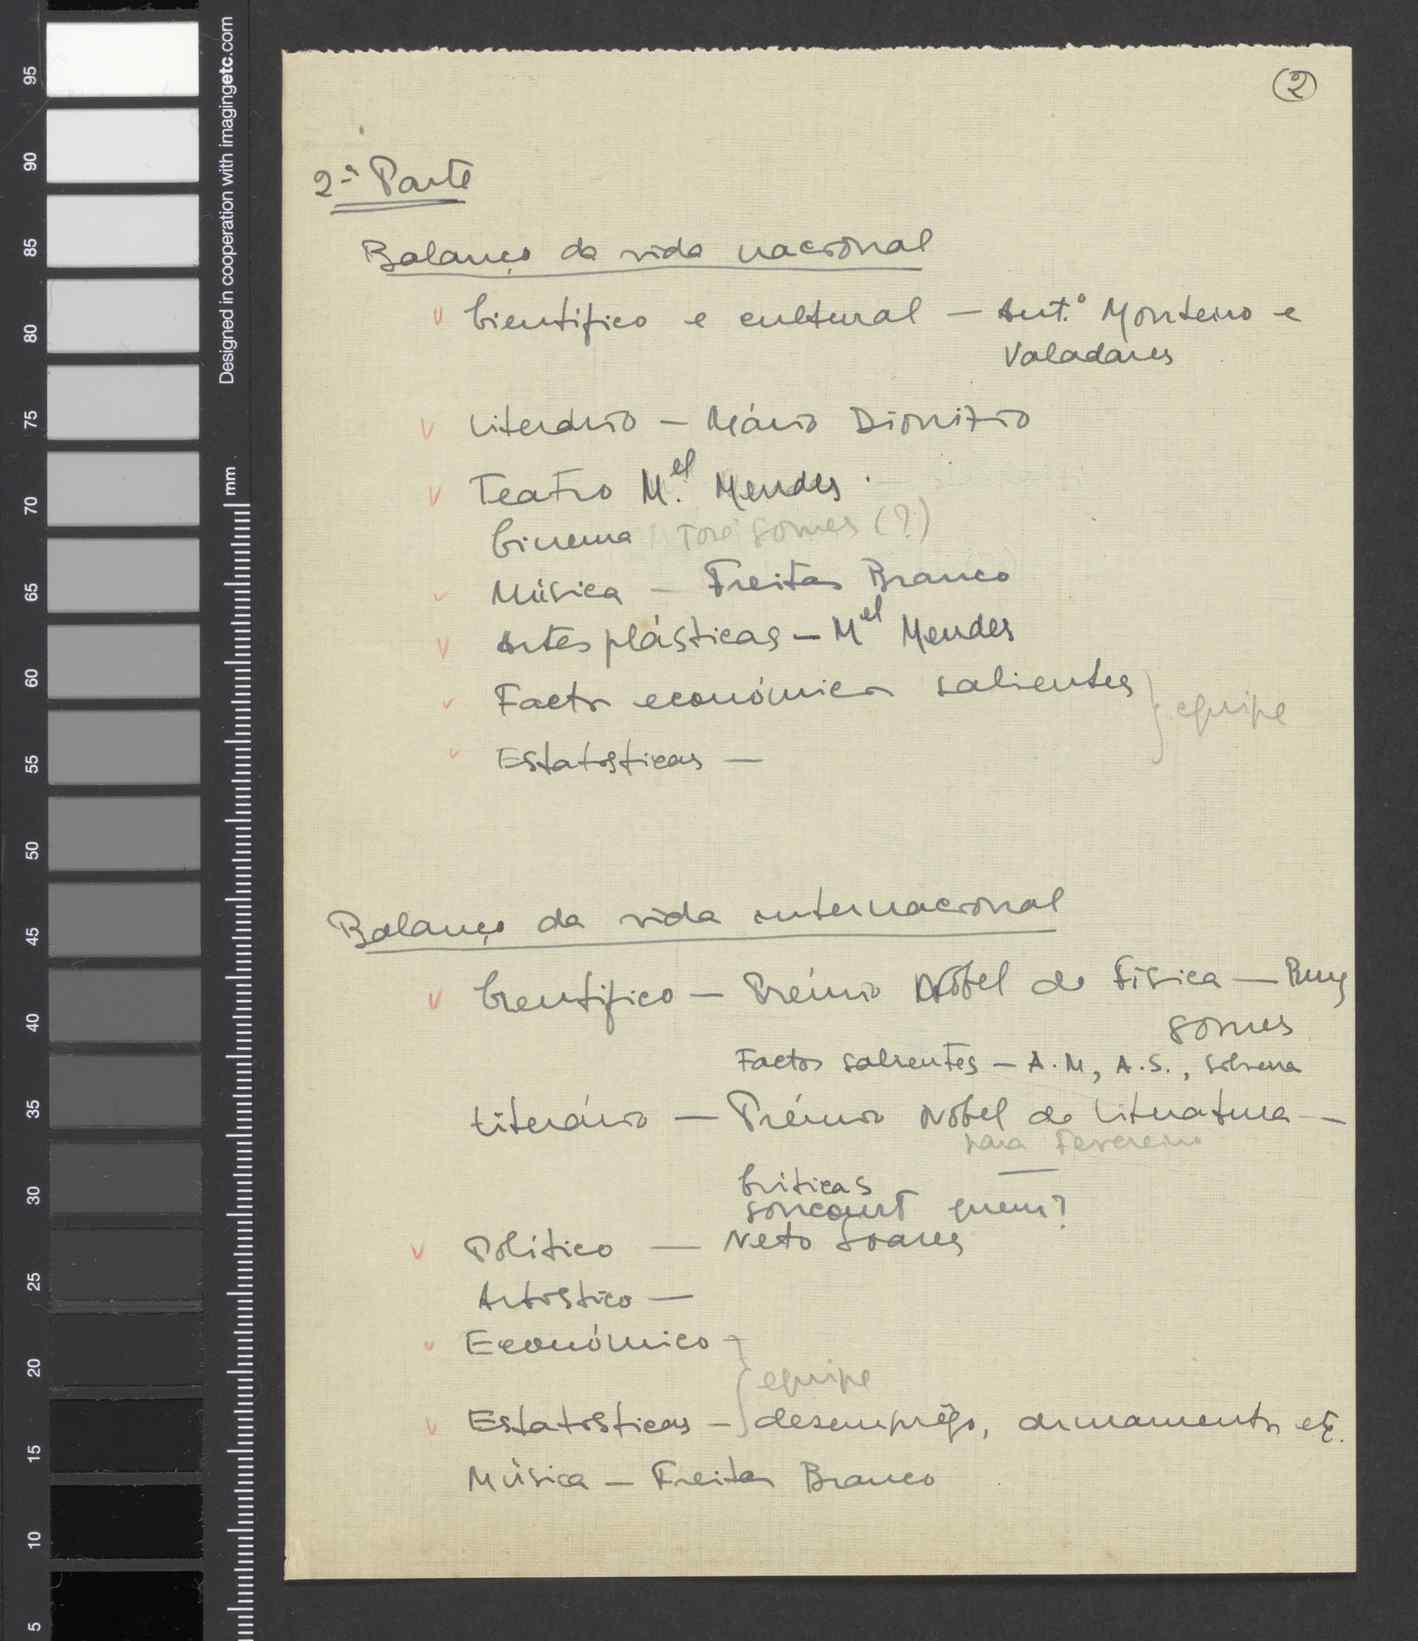 ②
2ª Parte
Balanço da vida nacional
v Científico e cultural — Antº Monteiro e
Valadares
v Literário — Mário Dionizio
v Teatro M.el Mendes.
Cinema José Gomes (?)
v Música — Freitas Branco
v Artes plásticas — Mel Mendes
v Factos económicos salientes } equipe
v Estatísticas —
Balanço da vida internacional
v Científico — Prémio Nobel de Física — Ruy
Gomes
Factos salientes — A.M, A.S.,
Literário — Prémio Nobel de Literatura —
para Fevereiro
Críticas
Goncourt quem?
v Político — Neto Soares
Artístico —
v Económico —
} equipe
v Estatísticas — desemprêgo, armamentos etc.
Música — Freitas Branco
95
90
85
80
75
70
65
60
55
50
45
40
35
30
25
20
15
10
5
Designed in cooperation with imagingetc.com
mm